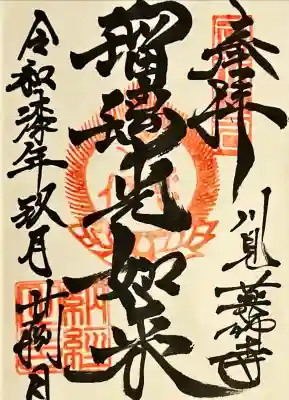 奉拝
川見薬師寺
瑠璃光如来
令和漆年玖月